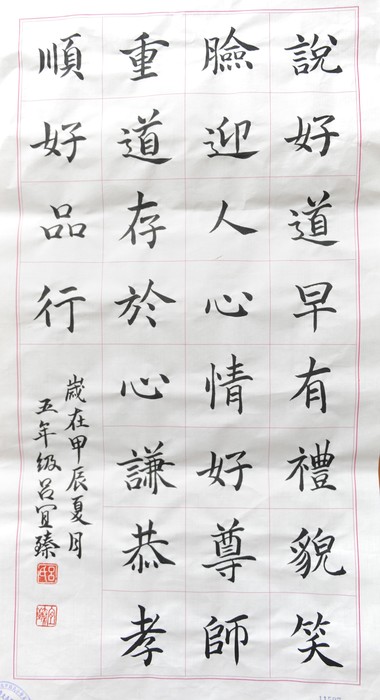 說好道早有禮貌笑
臉迎人心情好尊師
重道存於心謙恭孝
順好品行
歲在甲辰夏月
五年級呂宜臻